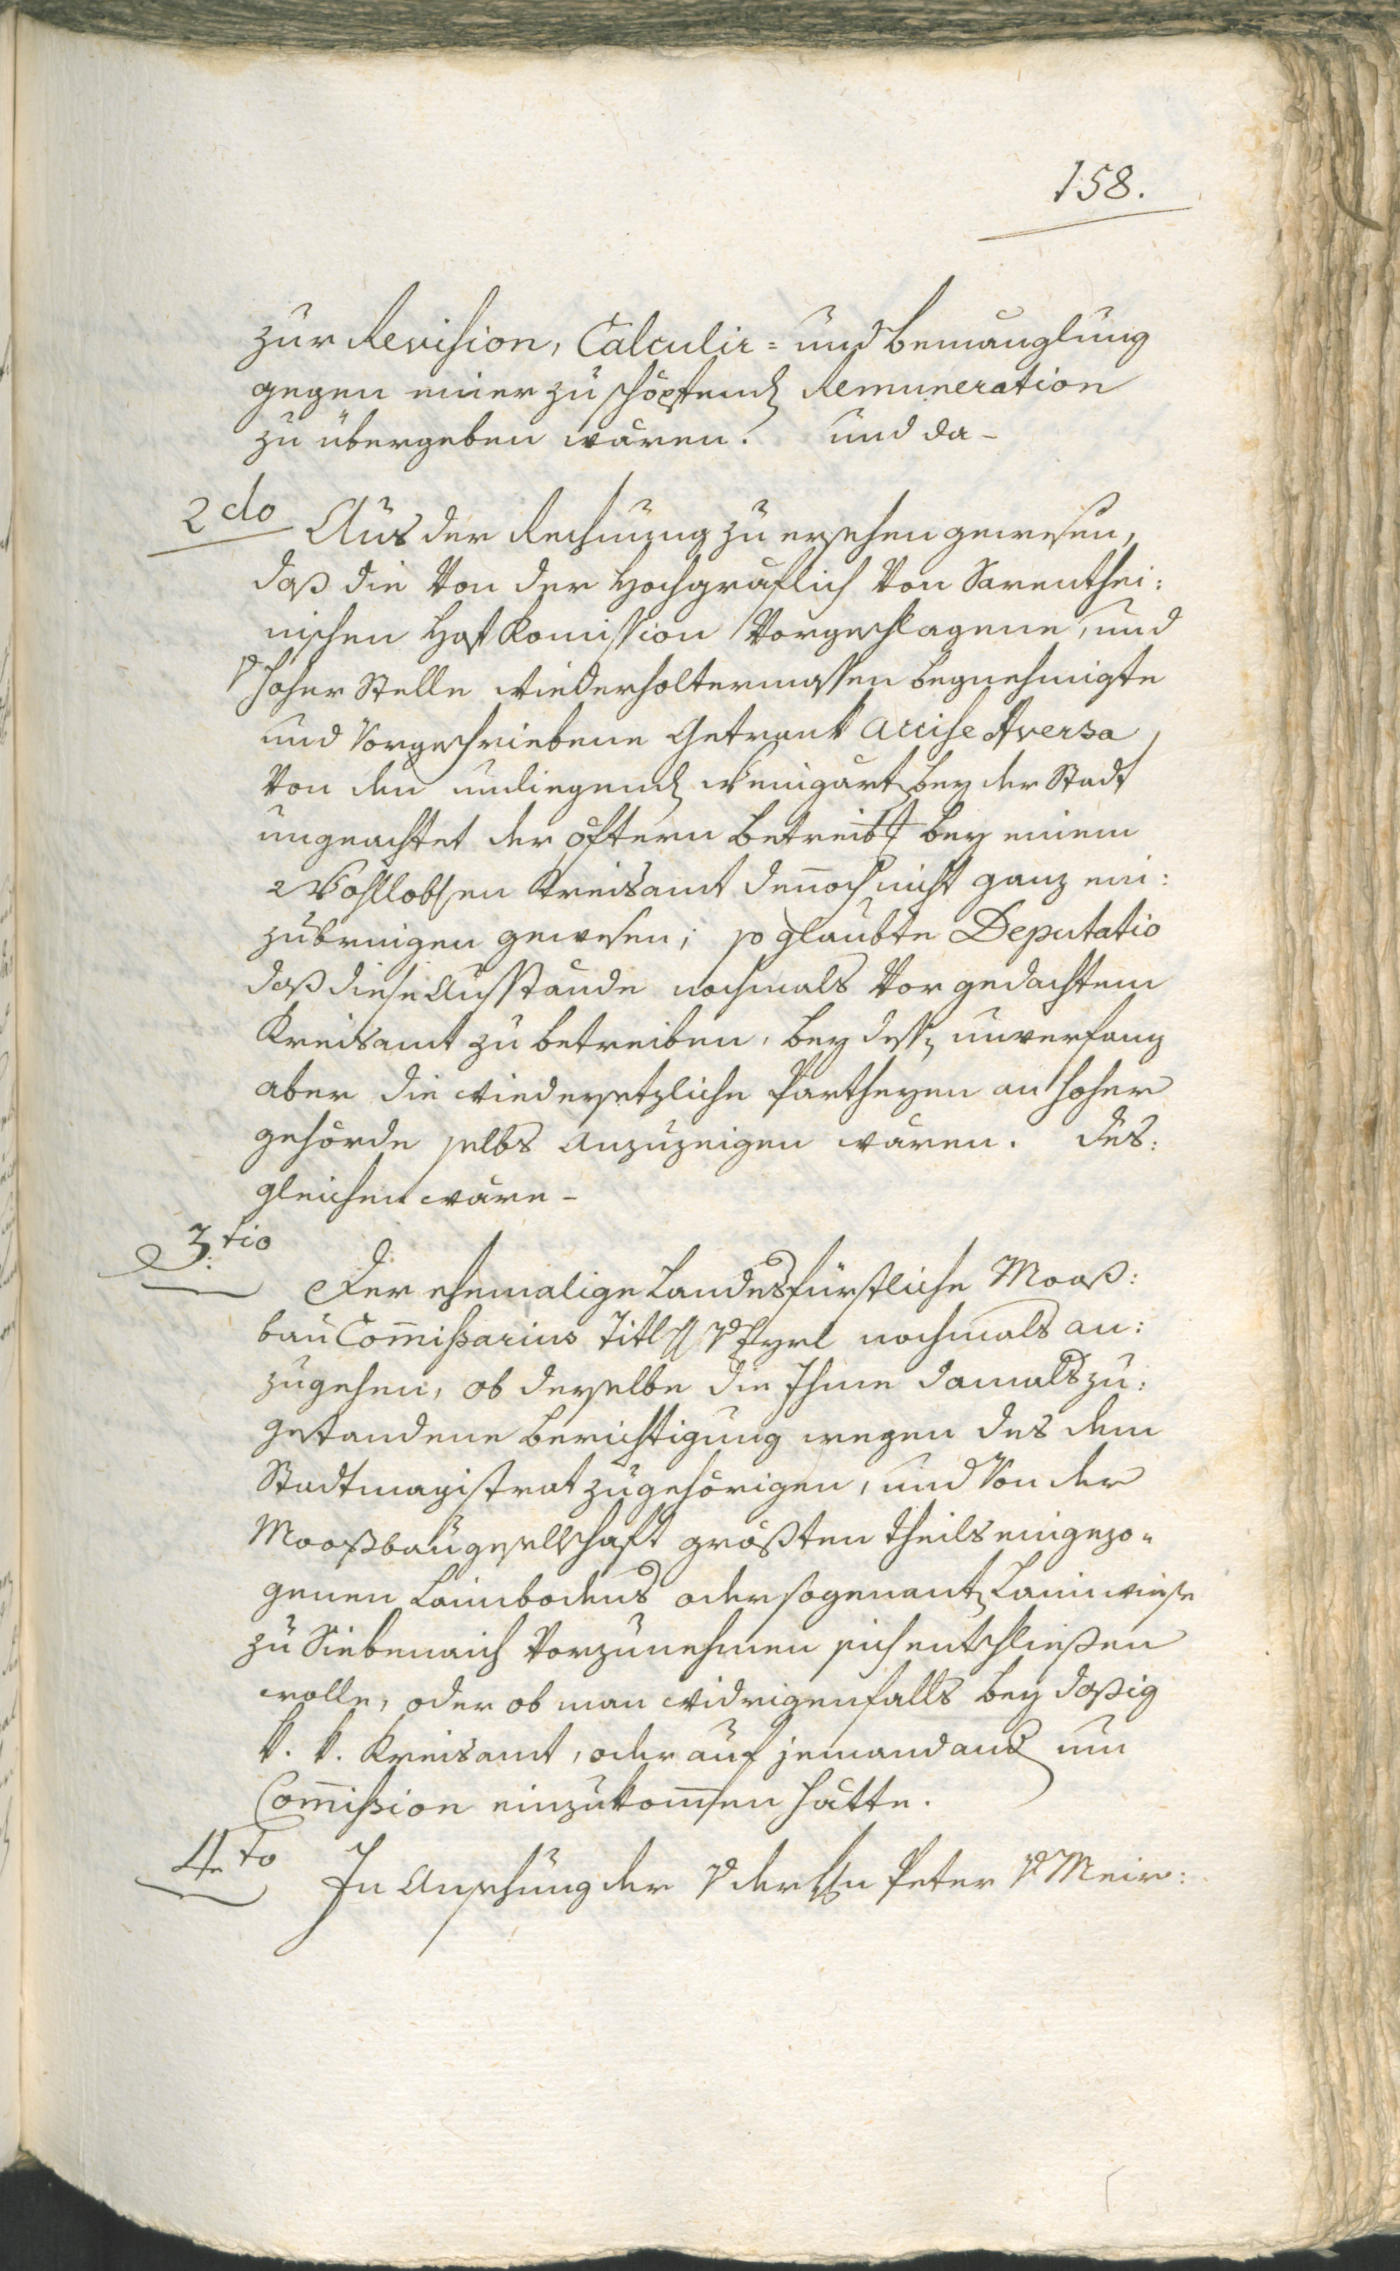 158.
zur Revision, Calculir= und Bemänglung
gegen einer zu schöpfend Remuneration
zu übergeben wären. und da-
2do Aus der Rechnung zu ersehen gewesen,
daß die von der Hochgräflich von Sarenthei:
nischen Hof Komission vorgeschlagene, und
v hoher Stelle wiederholtermassen begnehmigte
und vorgeschriebene Getrank accise Aversa
von den umliegend Weingart bey der Stadt
ungeachtet der öftern Betreib bey einem
Wohllobsen Kreisamt dennoch nicht ganz ein:
zubringen gewesen; so glaubte Deputatio
daß diese Ausstände nochmals vor gedachtem
Kreisamt zu betreiben, bey dess unverfang
aber die wiedersetzliche Partheyen an hoher
gehörde selbs anzuzeigen wären. Des:
gleichen wäre-
3.tio
Der ehemalige Landesfürstliche Mooß:
bau Commißarius Titl H v Eyrl nochmals an:
zugehen, ob derselbe die Ihme damals zu:
gestandene Berichtigung wegen des dem
Stadtmagistrat zugehörigen, und von der
Mooßbaugesellschaft größten theils eingezo=
genen Laimbodens oder sogenant Laimwiese
zu Siebenaich vorzunehmen sich entschließen
wolle, oder ob man widrigenfalls bey daßig
k. k. Kreisamt, oder auf jemand and um
Commißion einzukommen hätte.
4.to In Ansehung der v der Hn Peter v Meir: